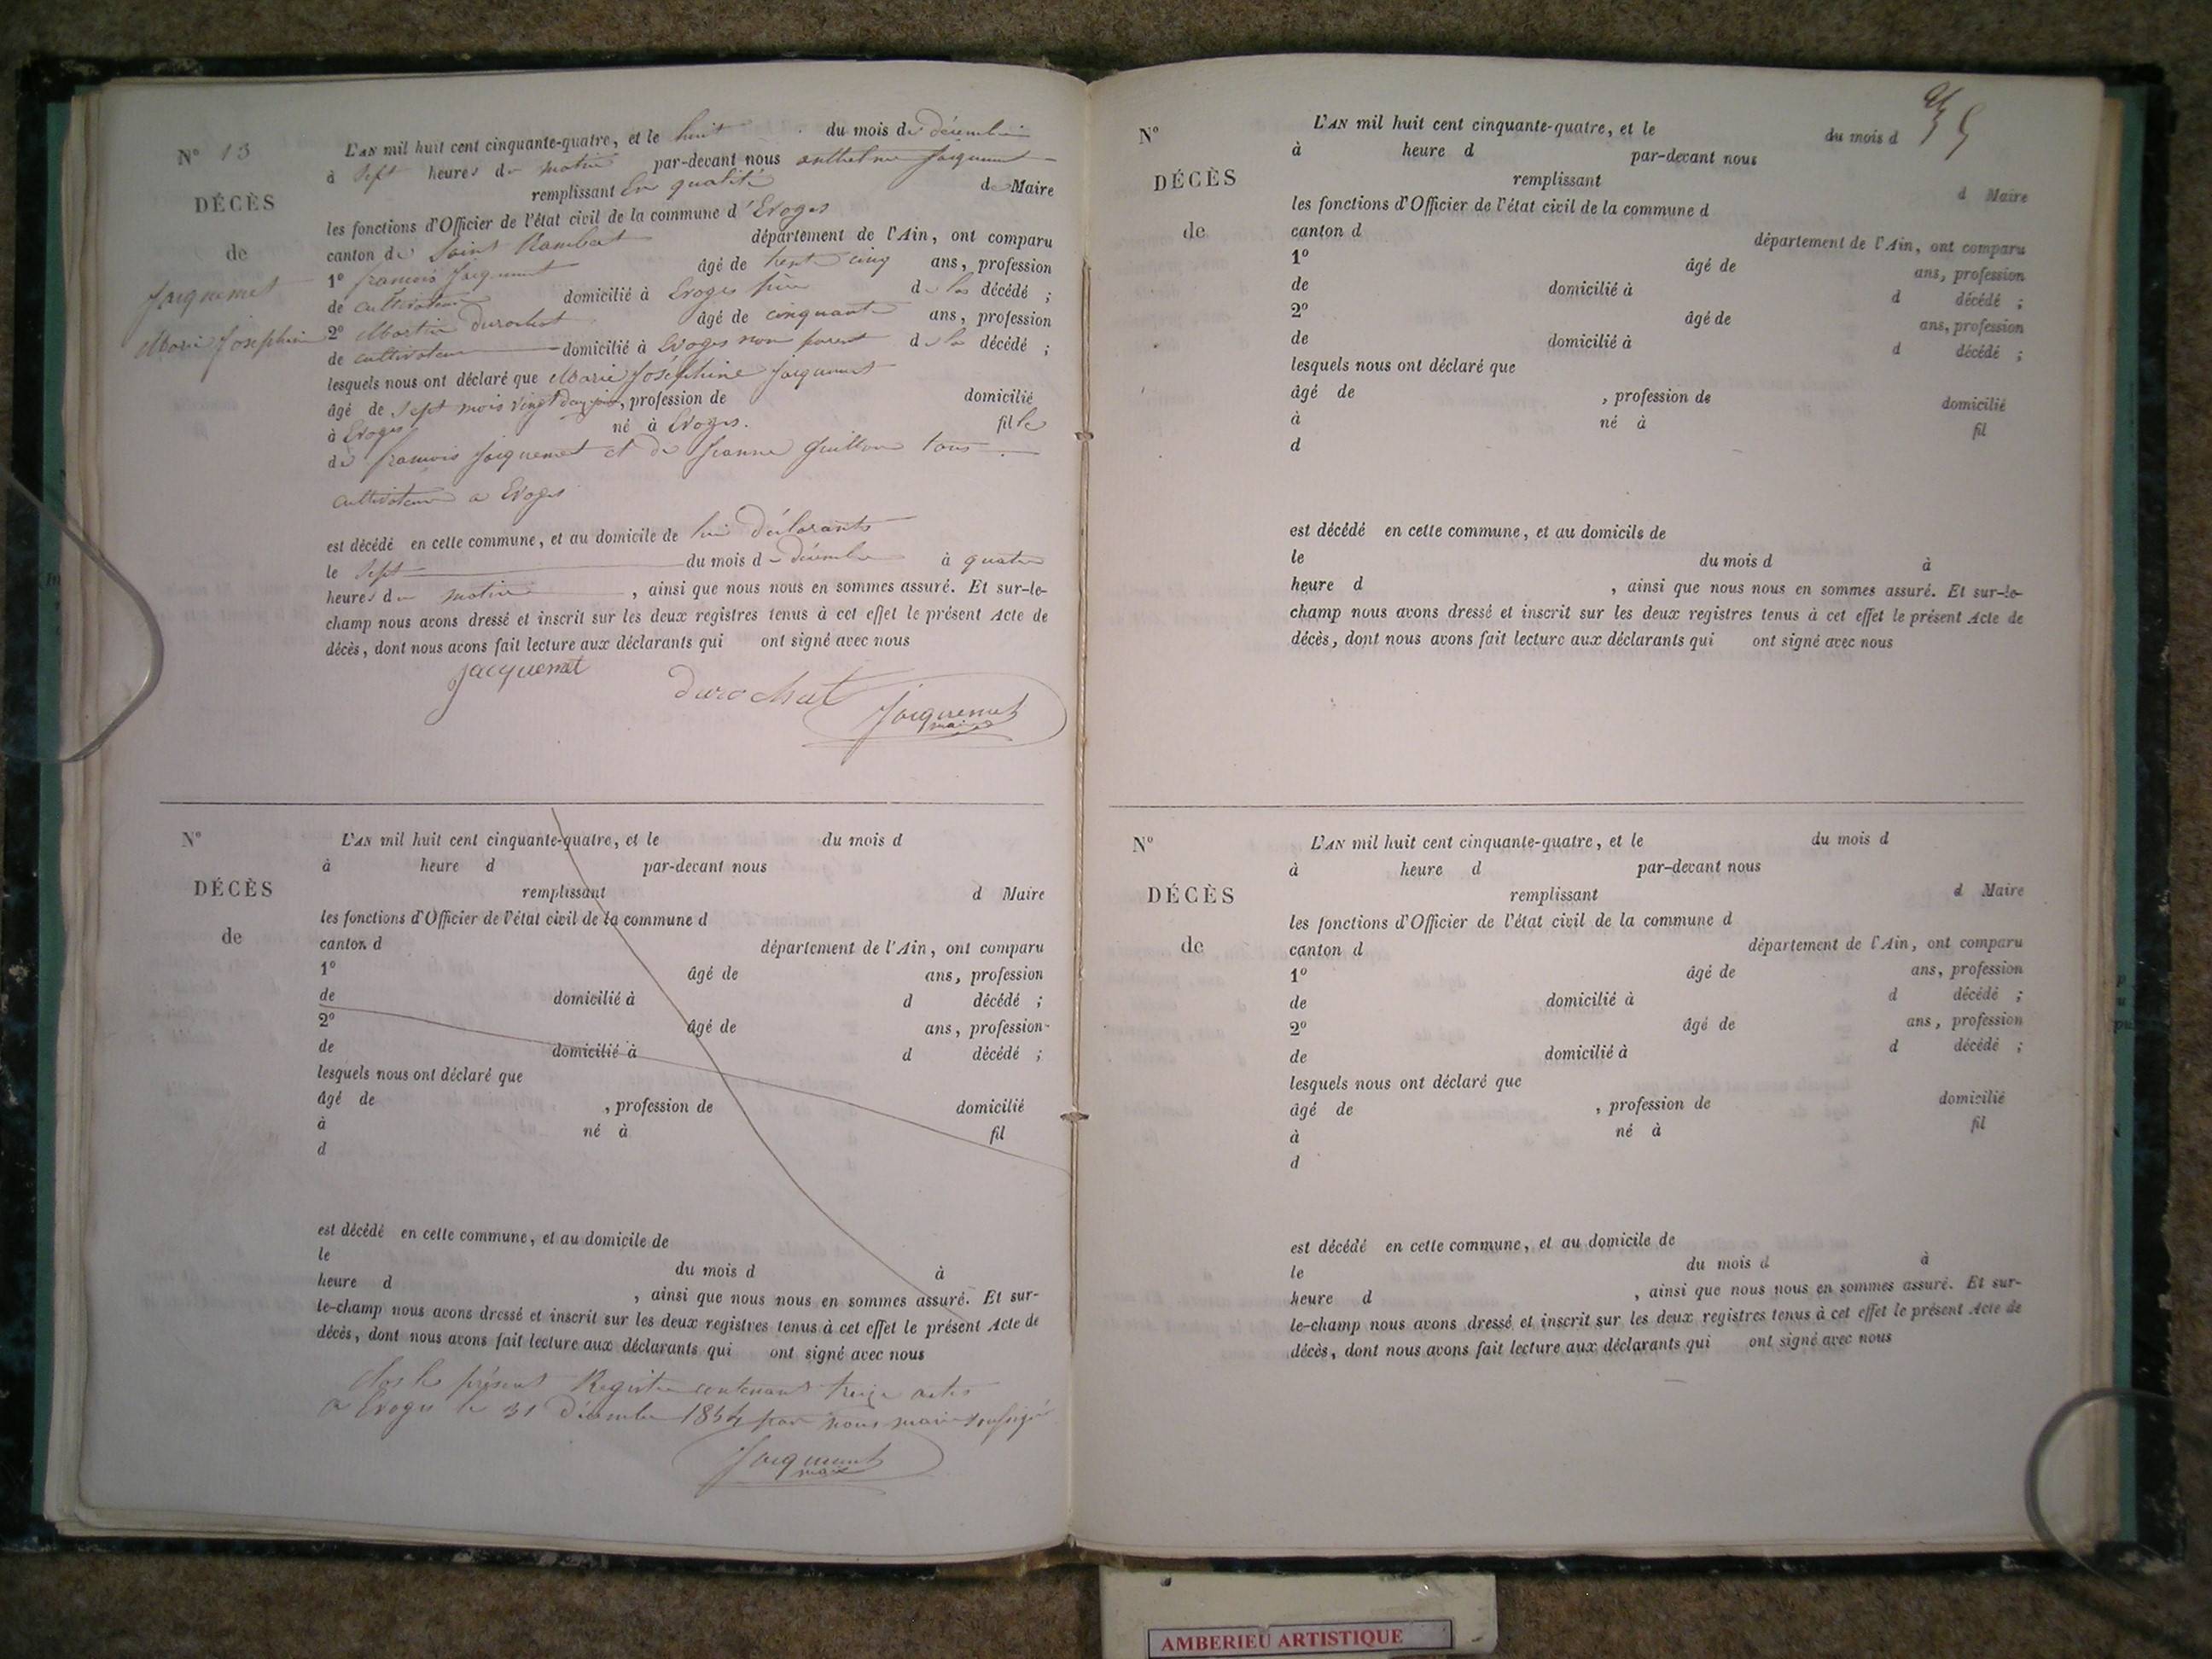 N° 13
DÉCÈS
de
Jacquemet
Marie Joséphine
L'AN mil huit cent cinquante-quatre, et le huit du mois de décembre
à sept heures du matin par-devant nous anthelme Jacquemet
remplissant en qualité de Maire
les fonctions d'Officier de l'état civil de la commune d'Evoges
canton de Saint Rambert département de l'Ain, ont comparu
1° françois Jacquemet âgé de trente cinq ans, profession
de cultivateur domicilié à Evoges père de la décédé ;
2° Martin durochat âgé de cinquante ans, profession
de cultivateur domicilié à Evoges non parent de la décédé ;
lesquels nous ont déclaré que Marie Joséphine Jacquemet
âgé de sept mois vingt deux jours, profession de domicilié
à Evoges né à Evoges. fille
de françois Jacquemet et de Jeanne Guillon tous
cultivateurs a Evoges
est décédé en cette commune, et au domicile de déclarants
le sept du mois de décembre à quatre
heures du matin, ainsi que nous nous en sommes assuré. Et sur-le-
champ nous avons dressé et inscrit sur les deux registres tenus à cet effet le présent Acte de
décès, dont nous avons fait lecture aux déclarants qui ont signé avec nous
jacquemet
durochat
Jacquemet
maire
N°
DÉCÈS
de
L'AN mil huit cent cinquante-quatre, et le du mois d
à heure d par-devant nous
remplissant d Maire
les fonctions d'Officier de l'état civil de la commune d
canton d département de l'Ain, ont comparu
1° âgé de ans, profession
de domicilié à d décédé ;
2° âgé de ans, profession
de domicilié à d décédé ;
lesquels nous ont déclaré que
âgé de , profession de domicilié
à né à fil
d
est décédé en cette commune, et au domicile de
le du mois d à
heure d , ainsi que nous nous en sommes assuré. Et sur-
le-champ nous avons dressé et inscrit sur les deux registres tenus à cet effet le présent Acte de
décès, dont nous avons fait lecture aux déclarants qui ont signé avec nous
Clos le présent Registre contenant treize actes
a Evoges le 31 décembre 1854 par nous maire soussigné
Jacquemet
maire
N°
DÉCÈS
de
L'AN mil huit cent cinquante-quatre, et le du mois d
à heure d par-devant nous
remplissant d Maire
les fonctions d'Officier de l'état civil de la commune d
canton d département de l'Ain, ont comparu
1° âgé de ans, profession
de domicilié à d décédé ;
2° âgé de ans, profession
de domicilié à d décédé ;
lesquels nous ont déclaré que
âgé de , profession de domicilié
à né à fil
d
est décédé en cette commune, et au domicile de
le du mois d à
heure d , ainsi que nous nous en sommes assuré. Et sur-le-
champ nous avons dressé et inscrit sur les deux registres tenus à cet effet le présent Acte de
décès, dont nous avons fait lecture aux déclarants qui ont signé avec nous
N°
DÉCÈS
de
L'AN mil huit cent cinquante-quatre, et le du mois d
à heure d par-devant nous
remplissant d Maire
les fonctions d'Officier de l'état civil de la commune d
canton d département de l'Ain, ont comparu
1° âgé de ans, profession
de domicilié à d décédé ;
2° âgé de ans, profession
de domicilié à d décédé ;
lesquels nous ont déclaré que
âgé de , profession de domicilié
à né à fil
d
est décédé en cette commune, et au domicile de
le du mois d à
heure d , ainsi que nous nous en sommes assuré. Et sur-
le-champ nous avons dressé et inscrit sur les deux registres tenus à cet effet le présent Acte de
décès, dont nous avons fait lecture aux déclarants qui ont signé avec nous
AMBERIEU ARTISTIQUE